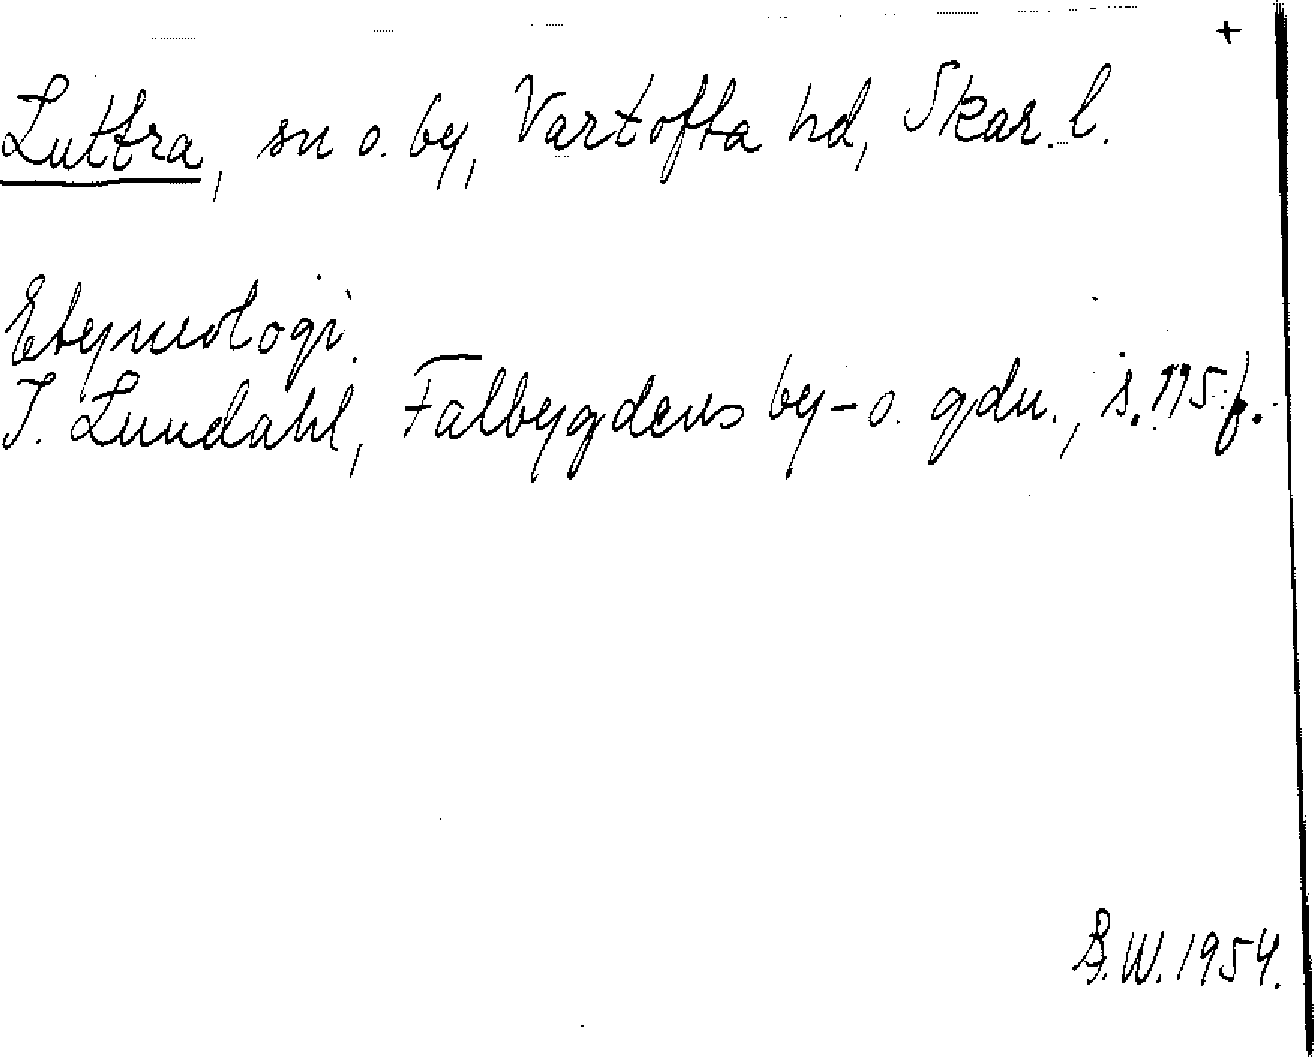 +
Luttra, sn o. by, Vartofta hd, Skar. l.
Etymologi.
I. Lundahl, Falbygdens by- o. gdn., s. 115 f.
B.W. 1954.